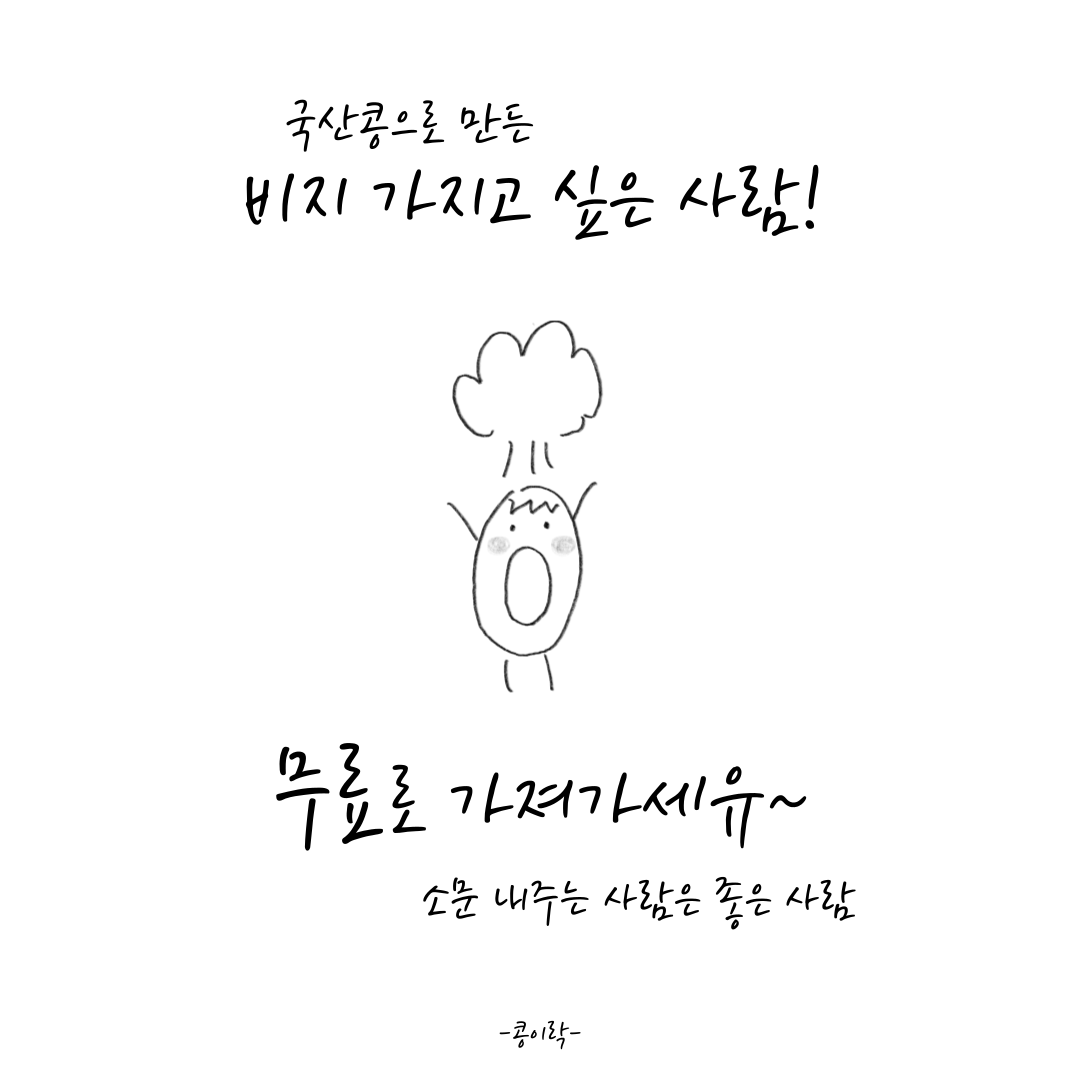 국산콩으로 만든
비지 가지고 싶은 사람!
무료로 가져가세유~
소문 내주는 사람은 좋은 사람
-콩이락-